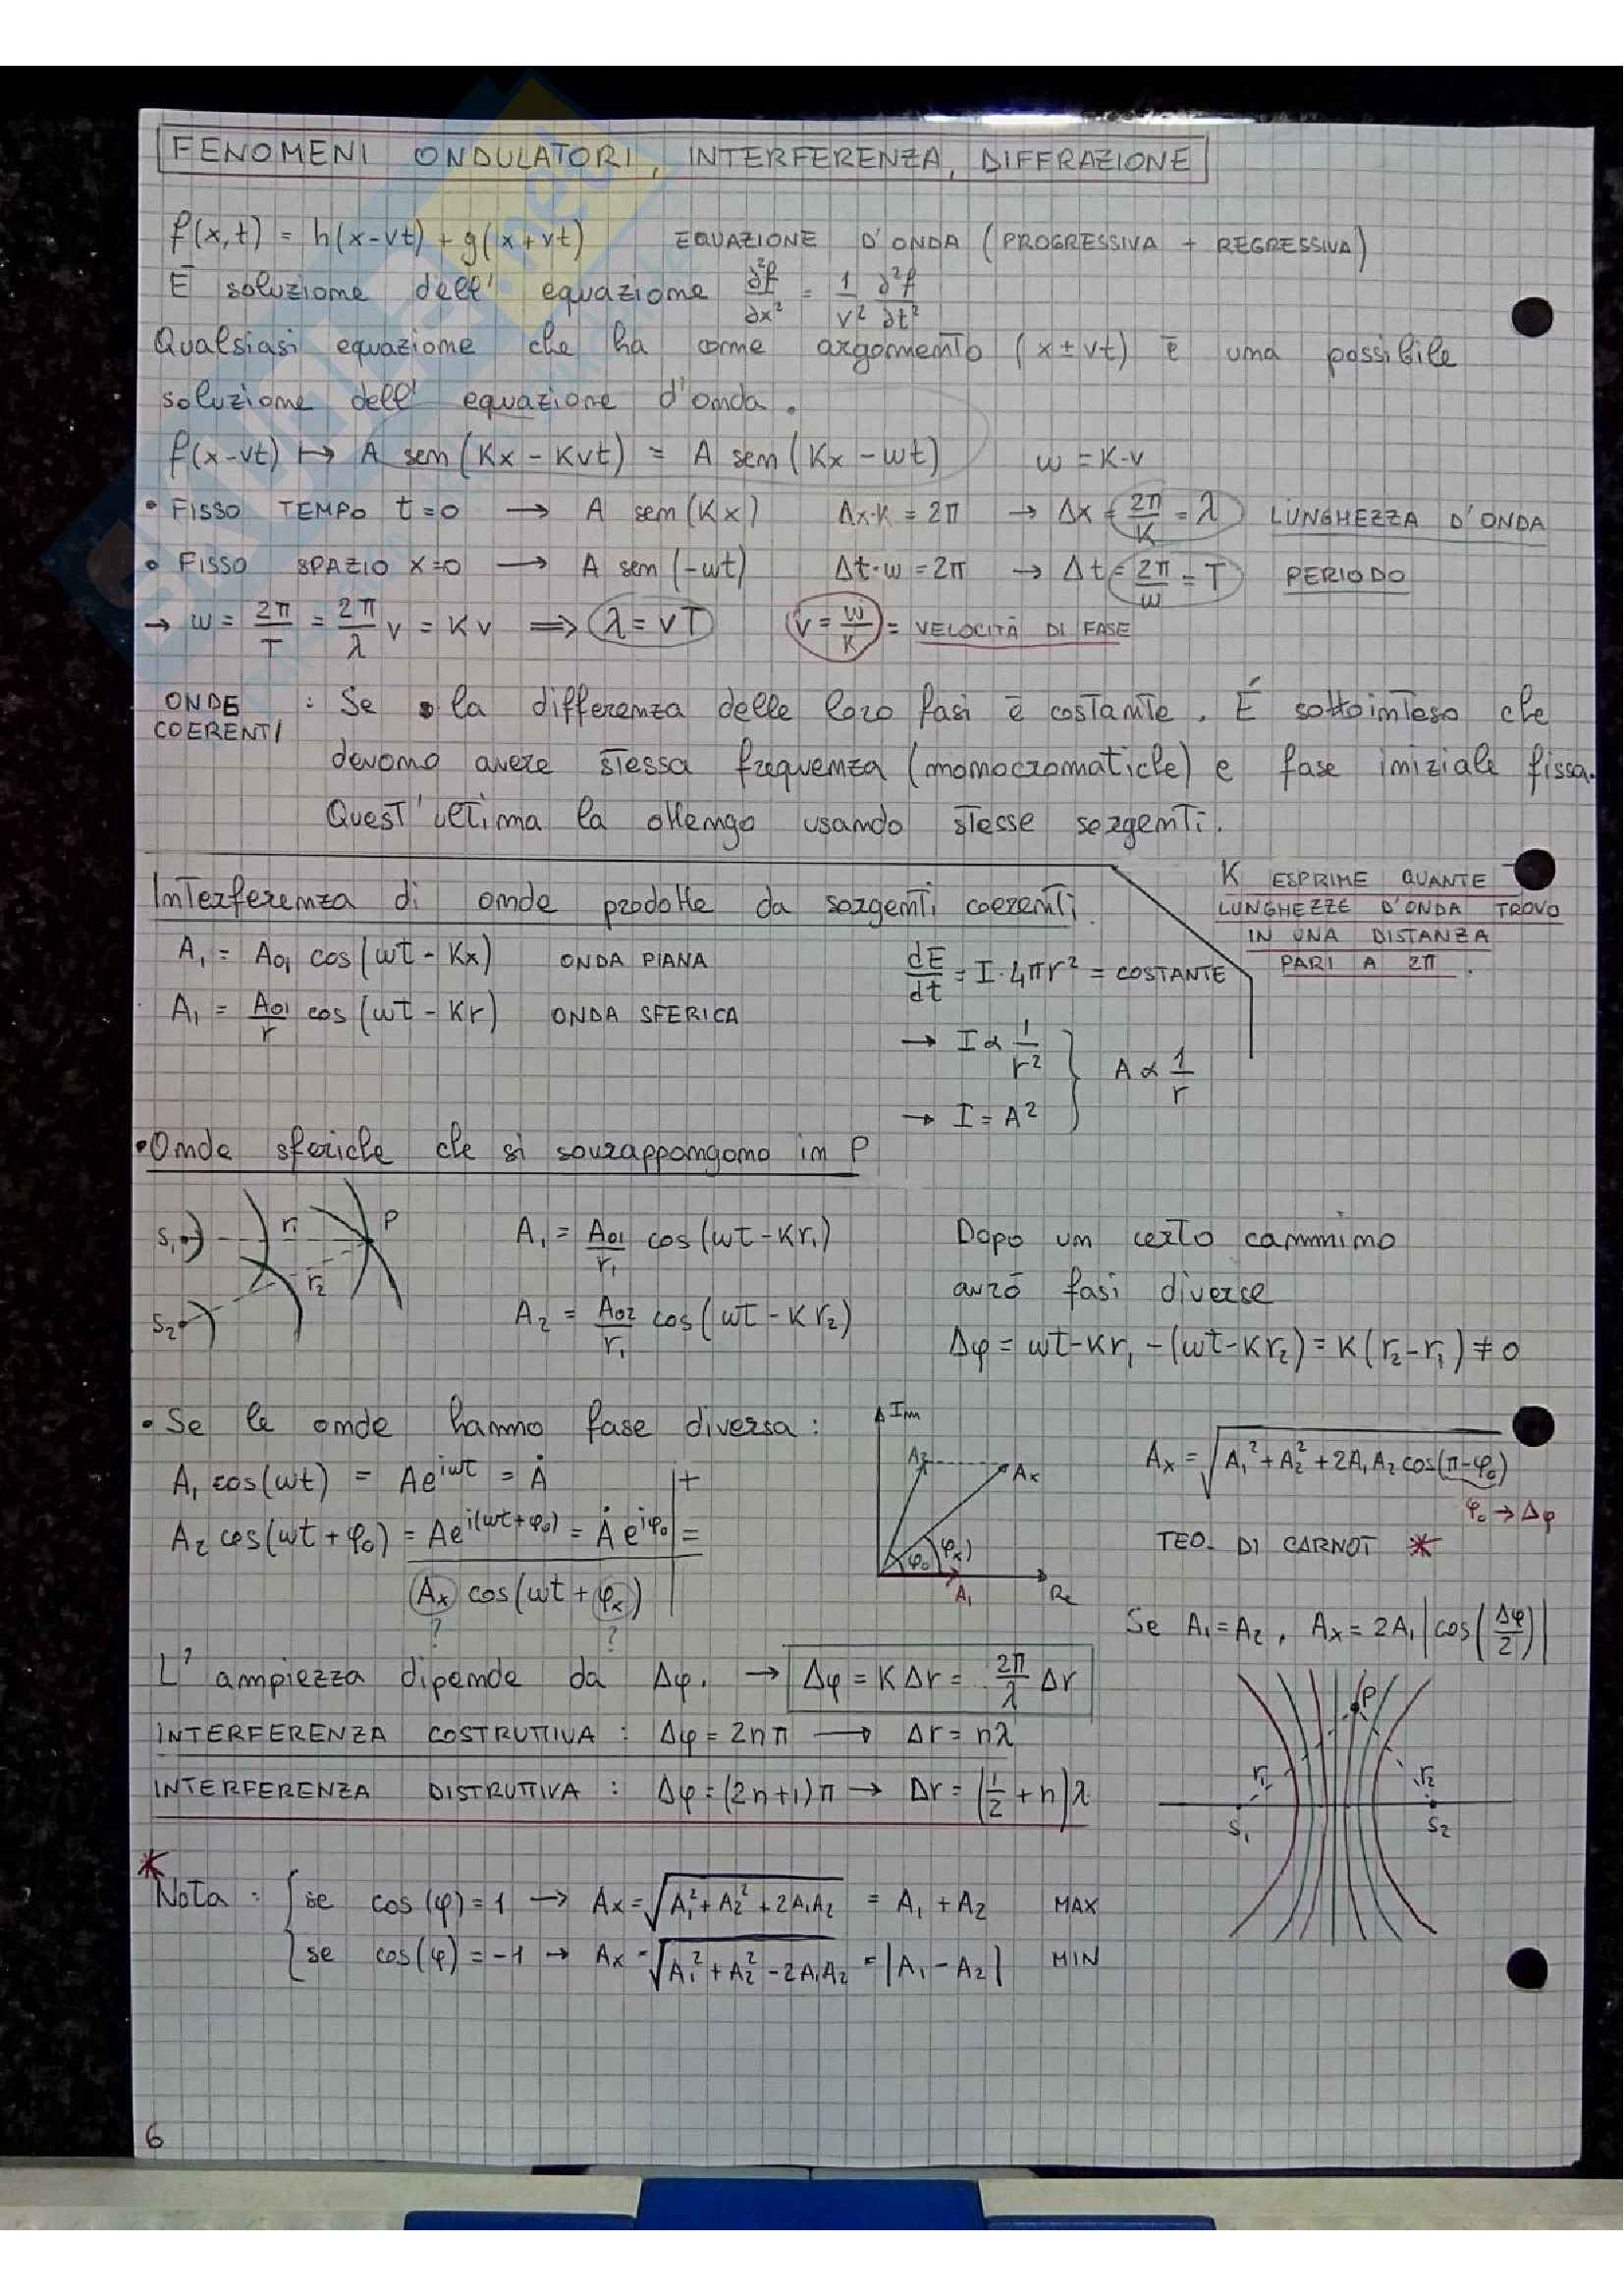 FENOMENI ONDULATORI, INTERFERENZA, DIFFRAZIONE
f(x,t) = h(x-vt) + g(x+vt) EQUAZIONE D'ONDA (PROGRESSIVA + REGRESSIVA)
È soluzione dell' equazione ∂²f/∂x² = 1/v² ∂²f/∂t²
Qualsiasi equazione che ha come argomento (x ± vt) è una possibile
soluzione dell' equazione d'onda.
f(x-vt) ↦ A sen(Kx - Kvt) = A sen(Kx - wt) w = K·v
• FISSO TEMPO t=0 → A sen(Kx) Δx·K = 2π → Δx = 2π/K = λ LUNGHEZZA D'ONDA
• FISSO SPAZIO x=0 → A sen(-wt) Δt·w = 2π → Δt = 2π/w = T PERIODO
→ w = 2π/T = 2π/λ v = Kv ⟹ λ = vT v = w/K = VELOCITÀ DI FASE
ONDE COERENTI : Se la differenza delle loro fasi è costante. É sottointeso che
devono avere stessa frequenza (monocromatiche) e fase iniziale fissa.
Quest'ultima la ottengo usando stesse sorgenti.
K ESPRIME QUANTE
LUNGHEZZE D'ONDA TROVO
IN UNA DISTANZA
PARI A 2π.
Interferenza di onde prodotte da sorgenti coerenti.
A₁ = A₀₁ cos(wt - Kx) ONDA PIANA dE/dt = I·4πr² = COSTANTE
A₁ = A₀₁/r cos(wt - Kr) ONDA SFERICA
→ I ∝ 1/r²
A ∝ 1/r
→ I = A²
• Onde sferiche che si sovrappongono in P
S₁ r₁ P
r₂
S₂
A₁ = A₀₁/r₁ cos(wt - Kr₁) Dopo un certo cammino
avrò fasi diverse
A₂ = A₀₂/r₁ cos(wt - Kr₂)
Δφ = wt-Kr₁ - (wt-Kr₂) = K(r₂-r₁) ≠ 0
• Se le onde hanno fase diversa:
A₁ cos(wt) = Ae^{iwt} = Ȧ +
A₂ cos(wt + φ₀) = Ae^{i(wt+φ₀)} = Ȧ e^{iφ₀} =
Ax cos(wt + φx)
? ?
Im
A₂ Ax
φ₀ φx
A₁ Re
Ax = √(A₁² + A₂² + 2A₁A₂ cos(π-φ₀))
φ₀ → Δφ
TEO. DI CARNOT *
Se A₁=A₂, Ax = 2A₁ |cos(Δφ/2)|
L' ampiezza dipende da Δφ. → Δφ = K Δr = 2π/λ Δr
INTERFERENZA COSTRUTTIVA : Δφ = 2nπ → Δr = nλ
INTERFERENZA DISTRUTTIVA : Δφ = (2n+1)π → Δr = (1/2 + n)λ
P
r₁ r₂
S₁ S₂
* Nota : { se cos(φ) = 1 → Ax = √(A₁² + A₂² + 2A₁A₂) = A₁ + A₂ MAX
se cos(φ) = -1 → Ax = √(A₁² + A₂² - 2A₁A₂) = |A₁ - A₂| MIN
6